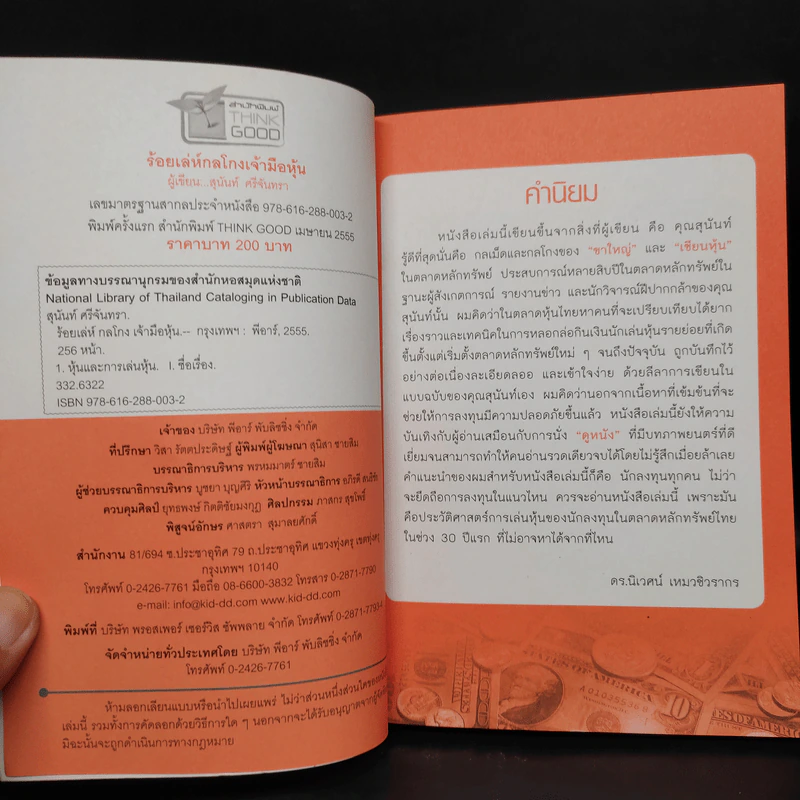 สำนักพิมพ์
THINK
GOOD
ร้อยเล่ห์กลโกงเจ้ามือหุ้น
ผู้เขียน...สุนันท์ ศรีจันทรา
เลขมาตรฐานสากลประจำหนังสือ 978-616-288-003-2
พิมพ์ครั้งแรก สำนักพิมพ์ THINK GOOD เมษายน 2555
ราคาบาท 200 บาท
ข้อมูลทางบรรณานุกรมของสำนักหอสมุดแห่งชาติ
National Library of Thailand Cataloging in Publication Data
สุนันท์ ศรีจันทรา.
ร้อยเล่ห์ กลโกง เจ้ามือหุ้น.-- กรุงเทพฯ : พีอาร์, 2555.
256 หน้า.
1. หุ้นและการเล่นหุ้น. I. ชื่อเรื่อง.
332.6322
ISBN 978-616-288-003-2
เจ้าของ บริษัท พีอาร์ พับลิชชิ่ง จำกัด
ที่ปรึกษา วิสา รัตตประดิษฐ์ ผู้พิมพ์ผู้โฆษณา สุนิสา ชายสิม
บรรณาธิการบริหาร พรหมมาตร์ ชายสิม
ผู้ช่วยบรรณาธิการบริหาร บูชยา บุญศิริ หัวหน้าบรรณาธิการ อภิรดี
ควบคุมศิลป์ ยุทธพงษ์ กิตติชัยมงกุฎ ศิลปกรรม ภาสกร สุขโพธิ์
พิสูจน์อักษร ศาสตรา สุมาลยศักดิ์
สำนักงาน 81/694 ซ.ประชาอุทิศ 79 ถ.ประชาอุทิศ แขวงทุ่งครุ เขตทุ่งครุ
กรุงเทพฯ 10140
โทรศัพท์ 0-2426-7761 มือถือ 08-6600-3832 โทรสาร 0-2871-7790
e-mail: info@kid-dd.com www.kid-dd.com
พิมพ์ที่ บริษัท พรอสเพอร์ เซอร์วิส ซัพพลาย จำกัด โทรศัพท์ 0-2871-7793-4
จัดจำหน่ายทั่วประเทศโดย บริษัท พีอาร์ พับลิชชิ่ง จำกัด
โทรศัพท์ 0-2426-7761
ห้ามลอกเลียนแบบหรือนำไปเผยแพร่ ไม่ว่าส่วนหนึ่งส่วนใดของหนังสือ
เล่มนี้ รวมทั้งการคัดลอกด้วยวิธีการใด ๆ นอกจากจะได้รับอนุญาตจาก
มิฉะนั้นจะถูกดำเนินการทางกฎหมาย
คำนิยม
หนังสือเล่มนี้เขียนขึ้นจากสิ่งที่ผู้เขียน คือ คุณสุนันท์
รู้ดีที่สุดนั่นคือ กลเม็ดและกลโกงของ "ขาใหญ่" และ "เซียนหุ้น"
ในตลาดหลักทรัพย์ ประสบการณ์หลายสิบปีในตลาดหลักทรัพย์ใน
ฐานะผู้สังเกตการณ์ รายงานข่าว และนักวิจารณ์ฝีปากกล้าของคุณ
สุนันท์นั้น ผมคิดว่าในตลาดหุ้นไทยหาคนที่จะเปรียบเทียบได้ยาก
เรื่องราวและเทคนิคในการหลอกล่อกินเงินนักเล่นหุ้นรายย่อยที่เกิด
ขึ้นตั้งแต่เริ่มตั้งตลาดหลักทรัพย์ใหม่ ๆ จนถึงปัจจุบัน ถูกบันทึกไว้
อย่างต่อเนื่องละเอียดลออ และเข้าใจง่าย ด้วยลีลาการเขียนใน
แบบฉบับของคุณสุนันท์เอง ผมคิดว่านอกจากเนื้อหาที่เข้มข้นที่จะ
ช่วยให้การลงทุนมีความปลอดภัยขึ้นแล้ว หนังสือเล่มนี้ยังให้ความ
บันเทิงกับผู้อ่านเสมือนกับการนั่ง "ดูหนัง" ที่มีบทภาพยนตร์ที่ดี
เยี่ยมจนสามารถทำให้คนอ่านรวดเดียวจบได้โดยไม่รู้สึกเมื่อยล้าเลย
คำแนะนำของผมสำหรับหนังสือเล่มนี้ก็คือ นักลงทุนทุกคน ไม่ว่า
จะยึดถือการลงทุนในแนวไหน ควรจะอ่านหนังสือเล่มนี้ เพราะมัน
คือประวัติศาสตร์การเล่นหุ้นของนักลงทุนในตลาดหลักทรัพย์ไทย
ในช่วง 30 ปีแรก ที่ไม่อาจหาได้จากที่ไหน
ดร.นิเวศน์ เหมวชิรวรากร